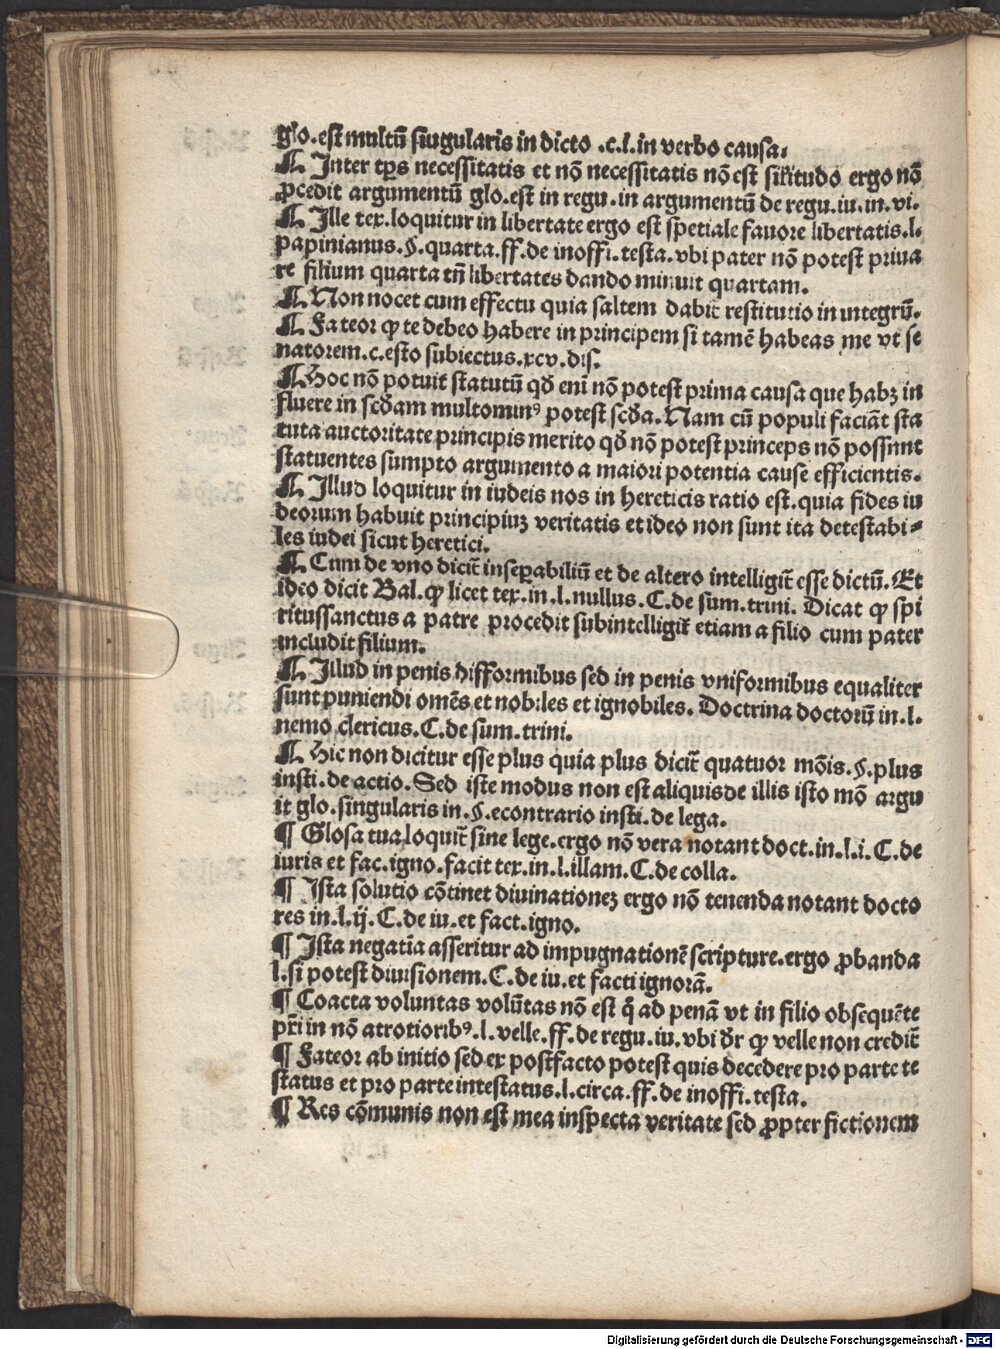 glo.est multũ singularis in dicto .c.l.in verbo causa.
¶ Inter tp̃s necessitatis et nõ necessitatis nõ est sil̃itudo ergo nõ
ꝓcedit argumentũ glo.est in regu.in argumentũ de regu.iu.in.vi.
¶ Ille tex.loquitur in libertate ergo est spetiale fauore libertatis.l.
papinianus.§.quarta.ff.de inoffi.testa.vbi pater nõ potest priua
re filium quarta tñ libertates dando minuit quartam.
¶ Non nocet cum effectu quia saltem dabit̃ restitutio in integrũ.
¶ Fateor ꝙ te debeo habere in principem si tamẽ habeas me vt se
natorem.c.esto subiectus.xcv.dis.
¶ Hoc nõ potuit statutũ qð eni nõ potest prima causa que habꝫ in
fluere in scðam multominꝰ potest scða. Nam cũ populi faciãt sta
tuta auctoritate principis merito qð nõ potest princeps nõ possunt
statuentes sumpto argumento a maiori potentia cause efficientis.
¶ Illud loquitur in iudeis nos in hereticis ratio est.quia fides iu
deorum habuit principiuꝫ veritatis et ideo non sunt ita detestabi⸗
les iudei sicut heretici.
¶ Cum de vno dicit̃ inseꝑabiliũ et de altero intelligit̃ esse dictũ. Et
ideo dicit Bal. ꝙ licet tex.in.l.nullus.C.de sum.trini. Dicat ꝙ spi
ritussanctus a patre procedit subintelligit̃ etiam a filio cum pater
includit filium.
¶ Illud in penis difformibus sed in penis vniformibus equaliter
sunt puniendi omẽs et nobiles et ignobiles. Doctrina doctorũ in.l.
nemo clericus.C.de sum.trini.
¶ Hic non dicitur esse plus quia plus dicit̃ quatuor mõis.§.plus
insti.de actio. Sed iste modus non est aliquis de illis isto mõ argu
it glo.singularis in.§.econtrario insti.de lega.
¶ Glosa tua loquit̃ sine lege.ergo nõ vera notant doct.in.l.i.C.de
iuris et fac.igno.facit tex.in.l.illam.C.de colla.
¶ Ista solutio cõtinet diuinationeꝫ ergo nõ tenenda notant docto
res in.l.ij.C.de iu.et fact.igno.
¶ Ista negatĩa asseritur ad impugnationẽ scripture.ergo ꝓbanda
l.si potest diuisionem.C.de iu.et facti ignorã.
¶ Coacta voluntas volũtas nõ est q̃ ad penã vt in filio obsequẽte
pr̃i in nõ atrotioribꝰ.l.velle.ff.de regu.iu.vbi ðr ꝙ velle non credit̃
¶ Fateor ab initio sed ex postfacto potest quis decedere pro parte te
status et pro parte intestatus.l.circa.ff.de inoffi.testa.
¶ Res cõmunis non est mea inspecta veritate sed ꝓpter fictionem
Digitalisierung gefördert durch die Deutsche Forschungsgemeinschaft - DFG